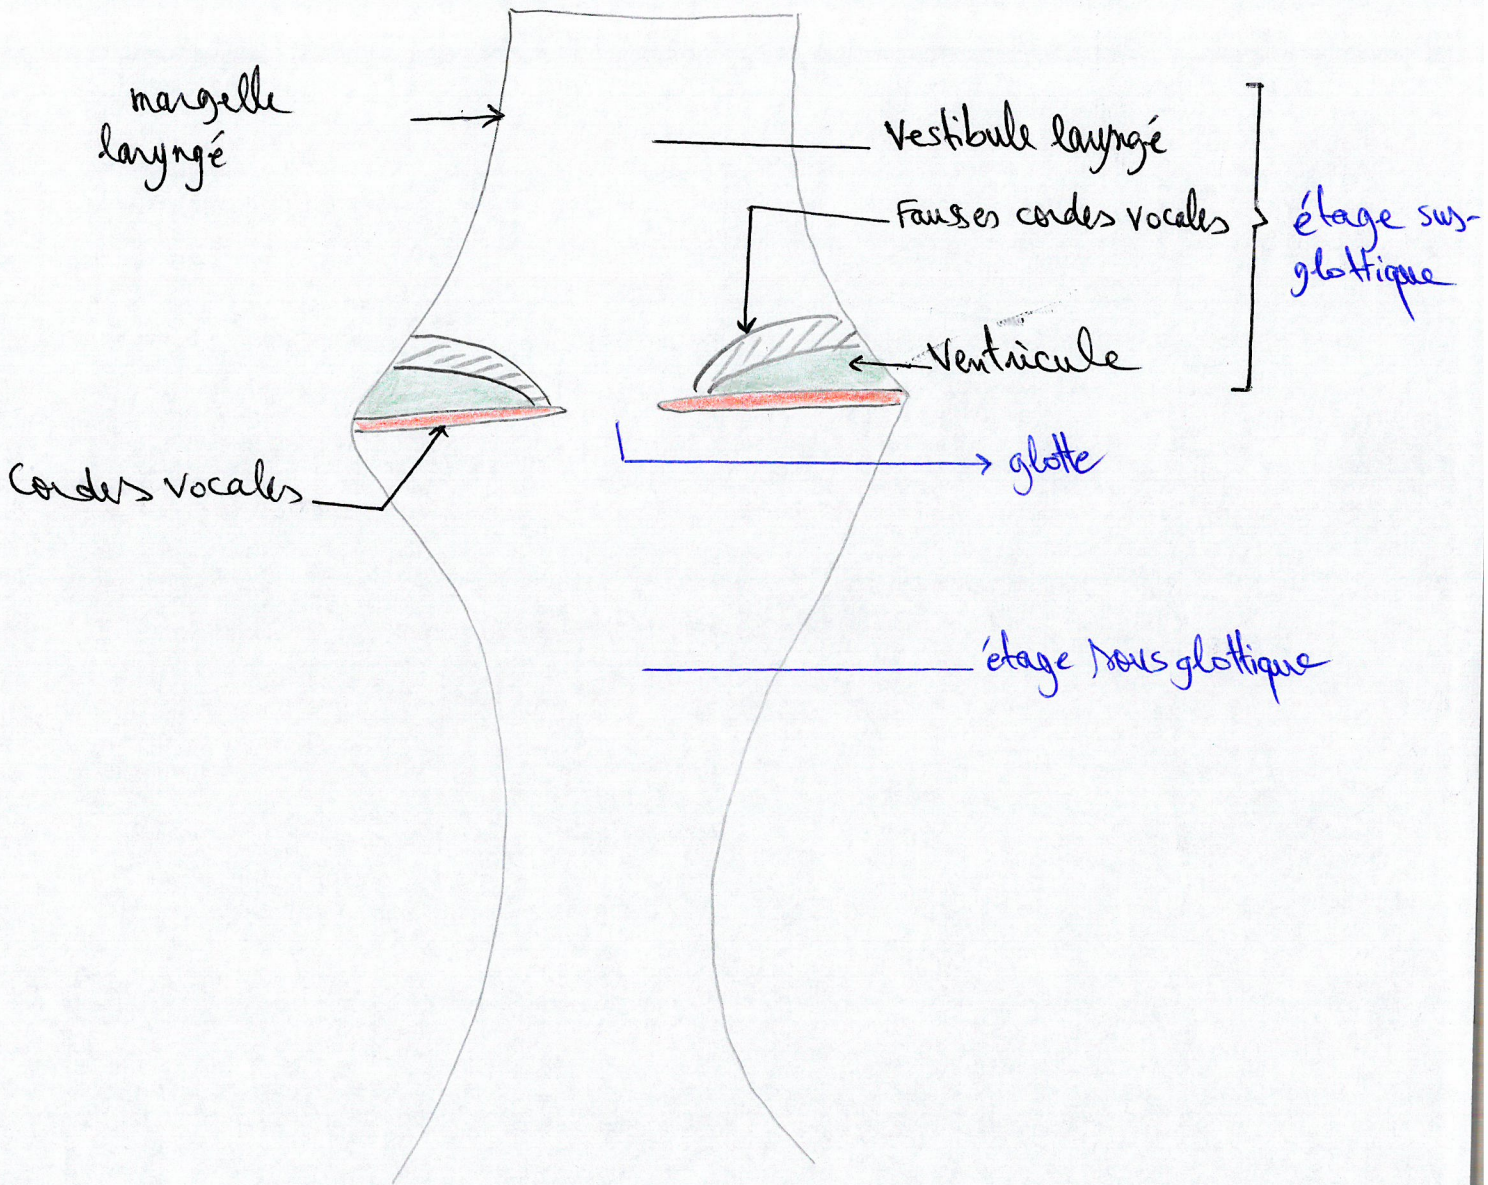 margelle
laryngé
Vestibule laryngé
Fausses cordes vocales
étage sus-
glottique
Ventricule
Cordes vocales
glotte
étage sous glottique